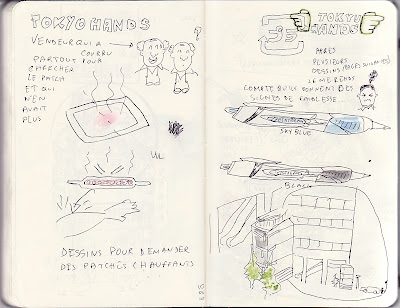 TOKYO HANDS
?
VENDEUR QUI A
COURRU
PARTOUT POUR
CHERCHER
LE PATCH
ET QUI
N'EN
AVAIT
PLUS
DESSINS POUR DEMANDER
DES PATCHS CHAUFFANTS
TOKYU
HANDS
APRES
PLUSIEURS
DESSINS (PAGES SUIVANTES)
JE ME RENDS
COMPTE QU'ILS DONNENT DES
SIGNES DE FAIBLESSE...
SKY BLUE
BLACK